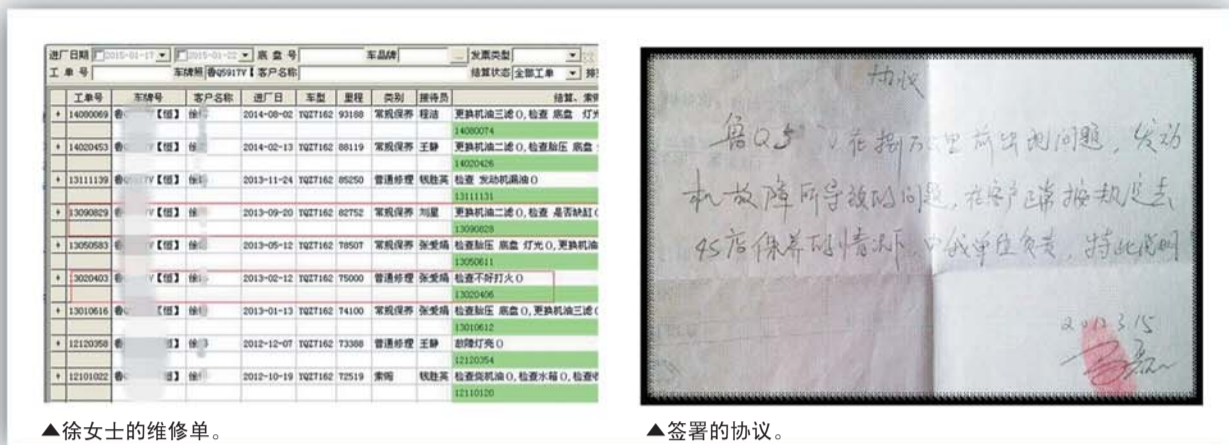 进厂日期 2015-01-17 2015-01-22 底盘号 车品牌 发票类型
工单号 车牌照 鲁Q5917V 客户名称 结算状态 全部工单
工单号 车牌号 客户名称 进厂日 车型 里程 类别 接待员 结算、索
14080069 【恒】 徐 2014-08-02 YQZ7162 93188 常规保养 程洁 更换机油三滤()，检查 底盘 灯光
14080074
14020453 【恒】 徐 2014-02-13 YQZ7162 88119 常规保养 王静 更换机油二滤()，检查胎压 底盘
14020426
13111139 V【恒】 徐 2013-11-24 YQZ7162 85250 普通修理 钱胜英 检查 发动机漏油()
13111131
13090829 【恒】 徐 2013-09-20 YQZ7162 82752 常规保养 刘星 更换机油二滤()，检查 是否缺缸()
13090828
13050583 V【恒】 徐 2013-05-12 YQZ7162 78507 常规保养 张爱娟 检查胎压 底盘 灯光()，更换机油
13050611
13020403 V【恒】 徐 2013-02-12 YQZ7162 75000 普通修理 张爱娟 检查不好打火()
13020406
13010616 【恒】 徐 2013-01-13 YQZ7162 74100 常规保养 张爱娟 检查胎压 底盘()，更换机油三滤()
13010612
12120358 】 徐 2012-12-07 YQZ7162 73388 普通修理 王静 故障灯亮()
12120354
12101022 】 徐 2012-10-19 YQZ7162 72519 索赔 钱胜英 检查烧机油()，检查水箱()，检查
12110120
▲徐女士的维修单。
协议
鲁Q5 V在 万公里前出现问题，发动
机故障所导致的问题，在客户正常按规定去
4S店保养的情况下 由我单位负责，特此说明
3 15
▲签署的协议。